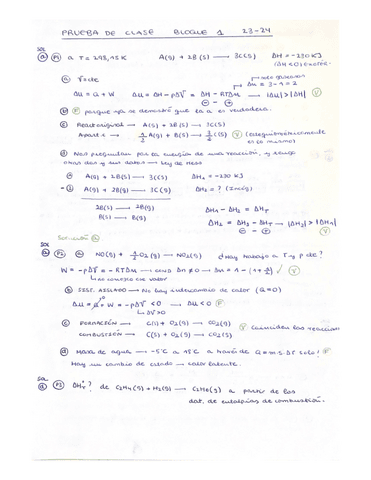 PRUEBA DE CLASE BLOQUE 1 23-24
SOL
a P1 a T = 298,15K A(g) + 2B(s) → 3C(s) ΔH = -230 KJ
(ΔH<0) exotér.
a V=cte
ΔU = Q + W ΔU = ΔH - pΔV = ΔH - RTΔn → |ΔU| > |ΔH| V
b F porque ya se demostró que la a es verdadera.
c React original → A(g) + 2B(s) → 3C(s)
Apart. c → 1/2 A(g) + B(s) → 3/2 C(s) V (estequiométricamente es lo mismo)
d Nos preguntan por la energía de una reacción, y tengo
otras dos y sus datos → ley de Hess
A(g) + 2B(s) → 3C(s) ΔH1 = -230 KJ
A(g) + 2B(g) → 3C(g) ΔH2 = ?
2B(s) → 2B(g) ΔH1 - ΔH2 = ΔHr
B(s) → B(g) ΔH2 = ΔH1 - ΔHr → ΔH2 > |ΔH1| V
Solución
SOL
P2 a NO(g) + 1/2 O2(g) → NO2(g) ¿Hay trabajo a T y p cte?
W = -pΔV = -RTΔn → como Δn ≠ 0 → Δn = 1 - (1 + 1/2) V
→ no conozco este valor
b SIST. AISLADO → No hay intercambio de calor (Q=0)
ΔU = Q + W = -pΔV < 0 → ΔU < 0 F
→ ΔV>0
c FORMACIÓN → C(s) + O2(g) → CO2(g) V coinciden las reacciones
COMBUSTIÓN → C(s) + O2(g) → CO2(g)
d Masa de agua → -5°C a 15°C a través de Q = m·s·ΔT solo? F
Hay un cambio de estado → calor latente.
SOL
d P3 ΔHr? de C2H4(g) + H2(g) → C2H6(g) a partir de los
dat. de entalpías de combustión.